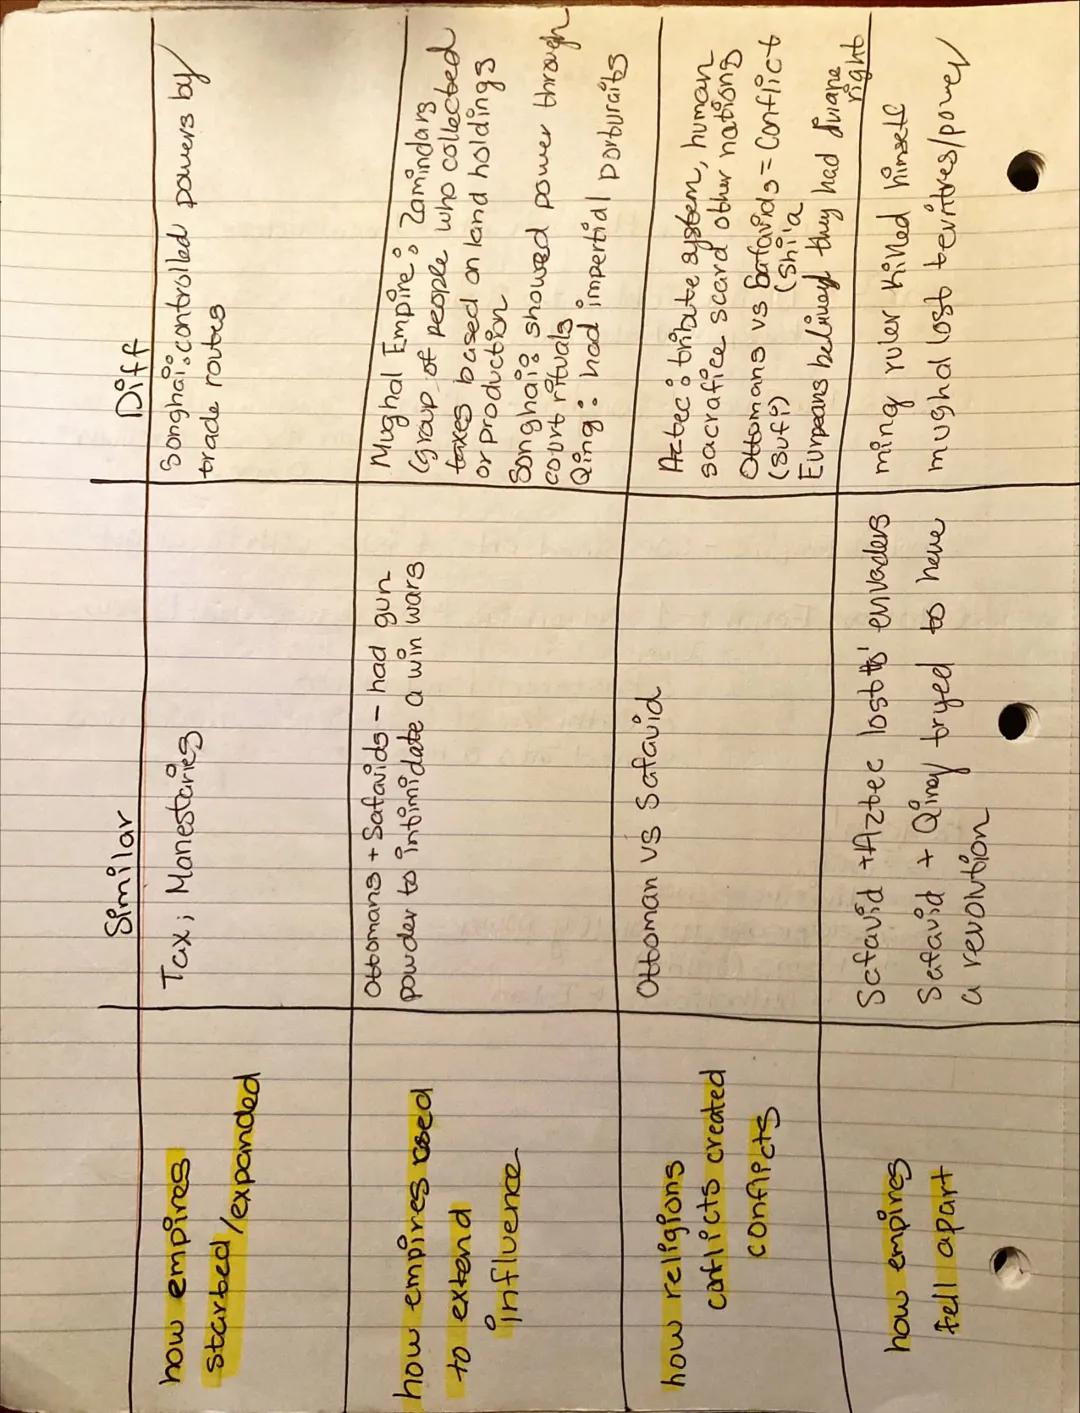 Similar
Diff
how empires
started/expanded
Tax; Manestaries
Songhai: controlled powers by
trade routes
how empires used
to extend
influence
Ottomans + Safavids - had gun
powder to intimidate a win wars
Mughal Empire: Zamindars
(group of people who collected
taxes based on land holdings
or production
Songhai: showed power through
court rituals
Qing: had impertial porturaits
how religions
conflicts created
conflicts
Ottoman vs Safavid
Aztec: tribute system, human
sacrafice scard other nations
Ottomans vs Safavids = Conflict
(Sufi) (Shi'a
Eurpeans believed they had
right
how empires
fell apart
Safavid + Aztec lost to envaders
Safavid + Qing tryed to have
a revolution
ming ruler killed himself
mughal lost teritres/power